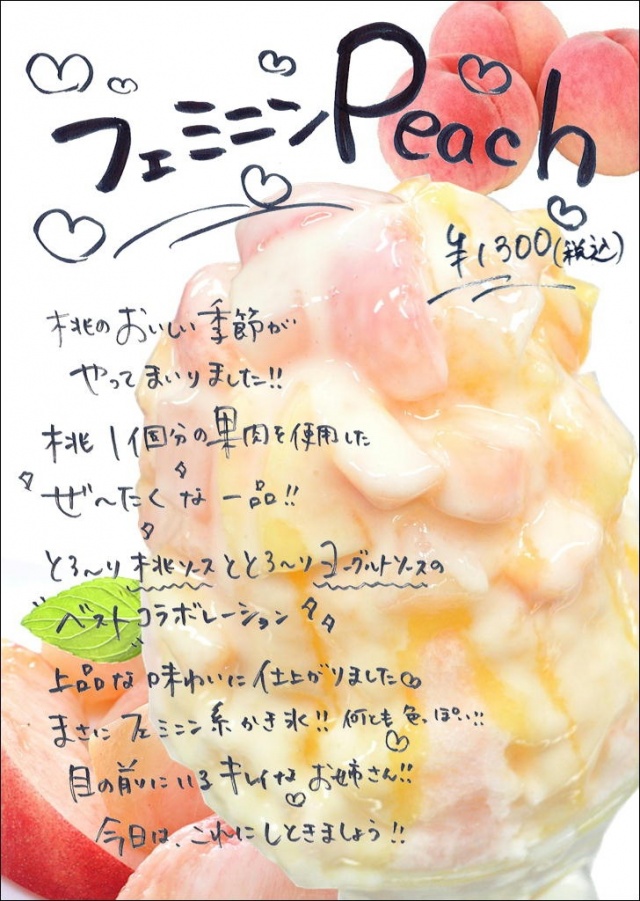 フェミニンPeach
¥1300(税込)
桃のおいしい季節が
やってまいりました!!
桃1個分の果肉を使用した
ぜ〜たくな一品!!
とろ〜り桃ソースととろ〜りヨーグルトソースの
ベストコラボレーション
上品な味わいに仕上がりました♡
まさにフェミニン系かき氷!! 何とも色っぽい!!
目の前にいるキレイなお姉さん!!
今日は、これにしときましょう!!